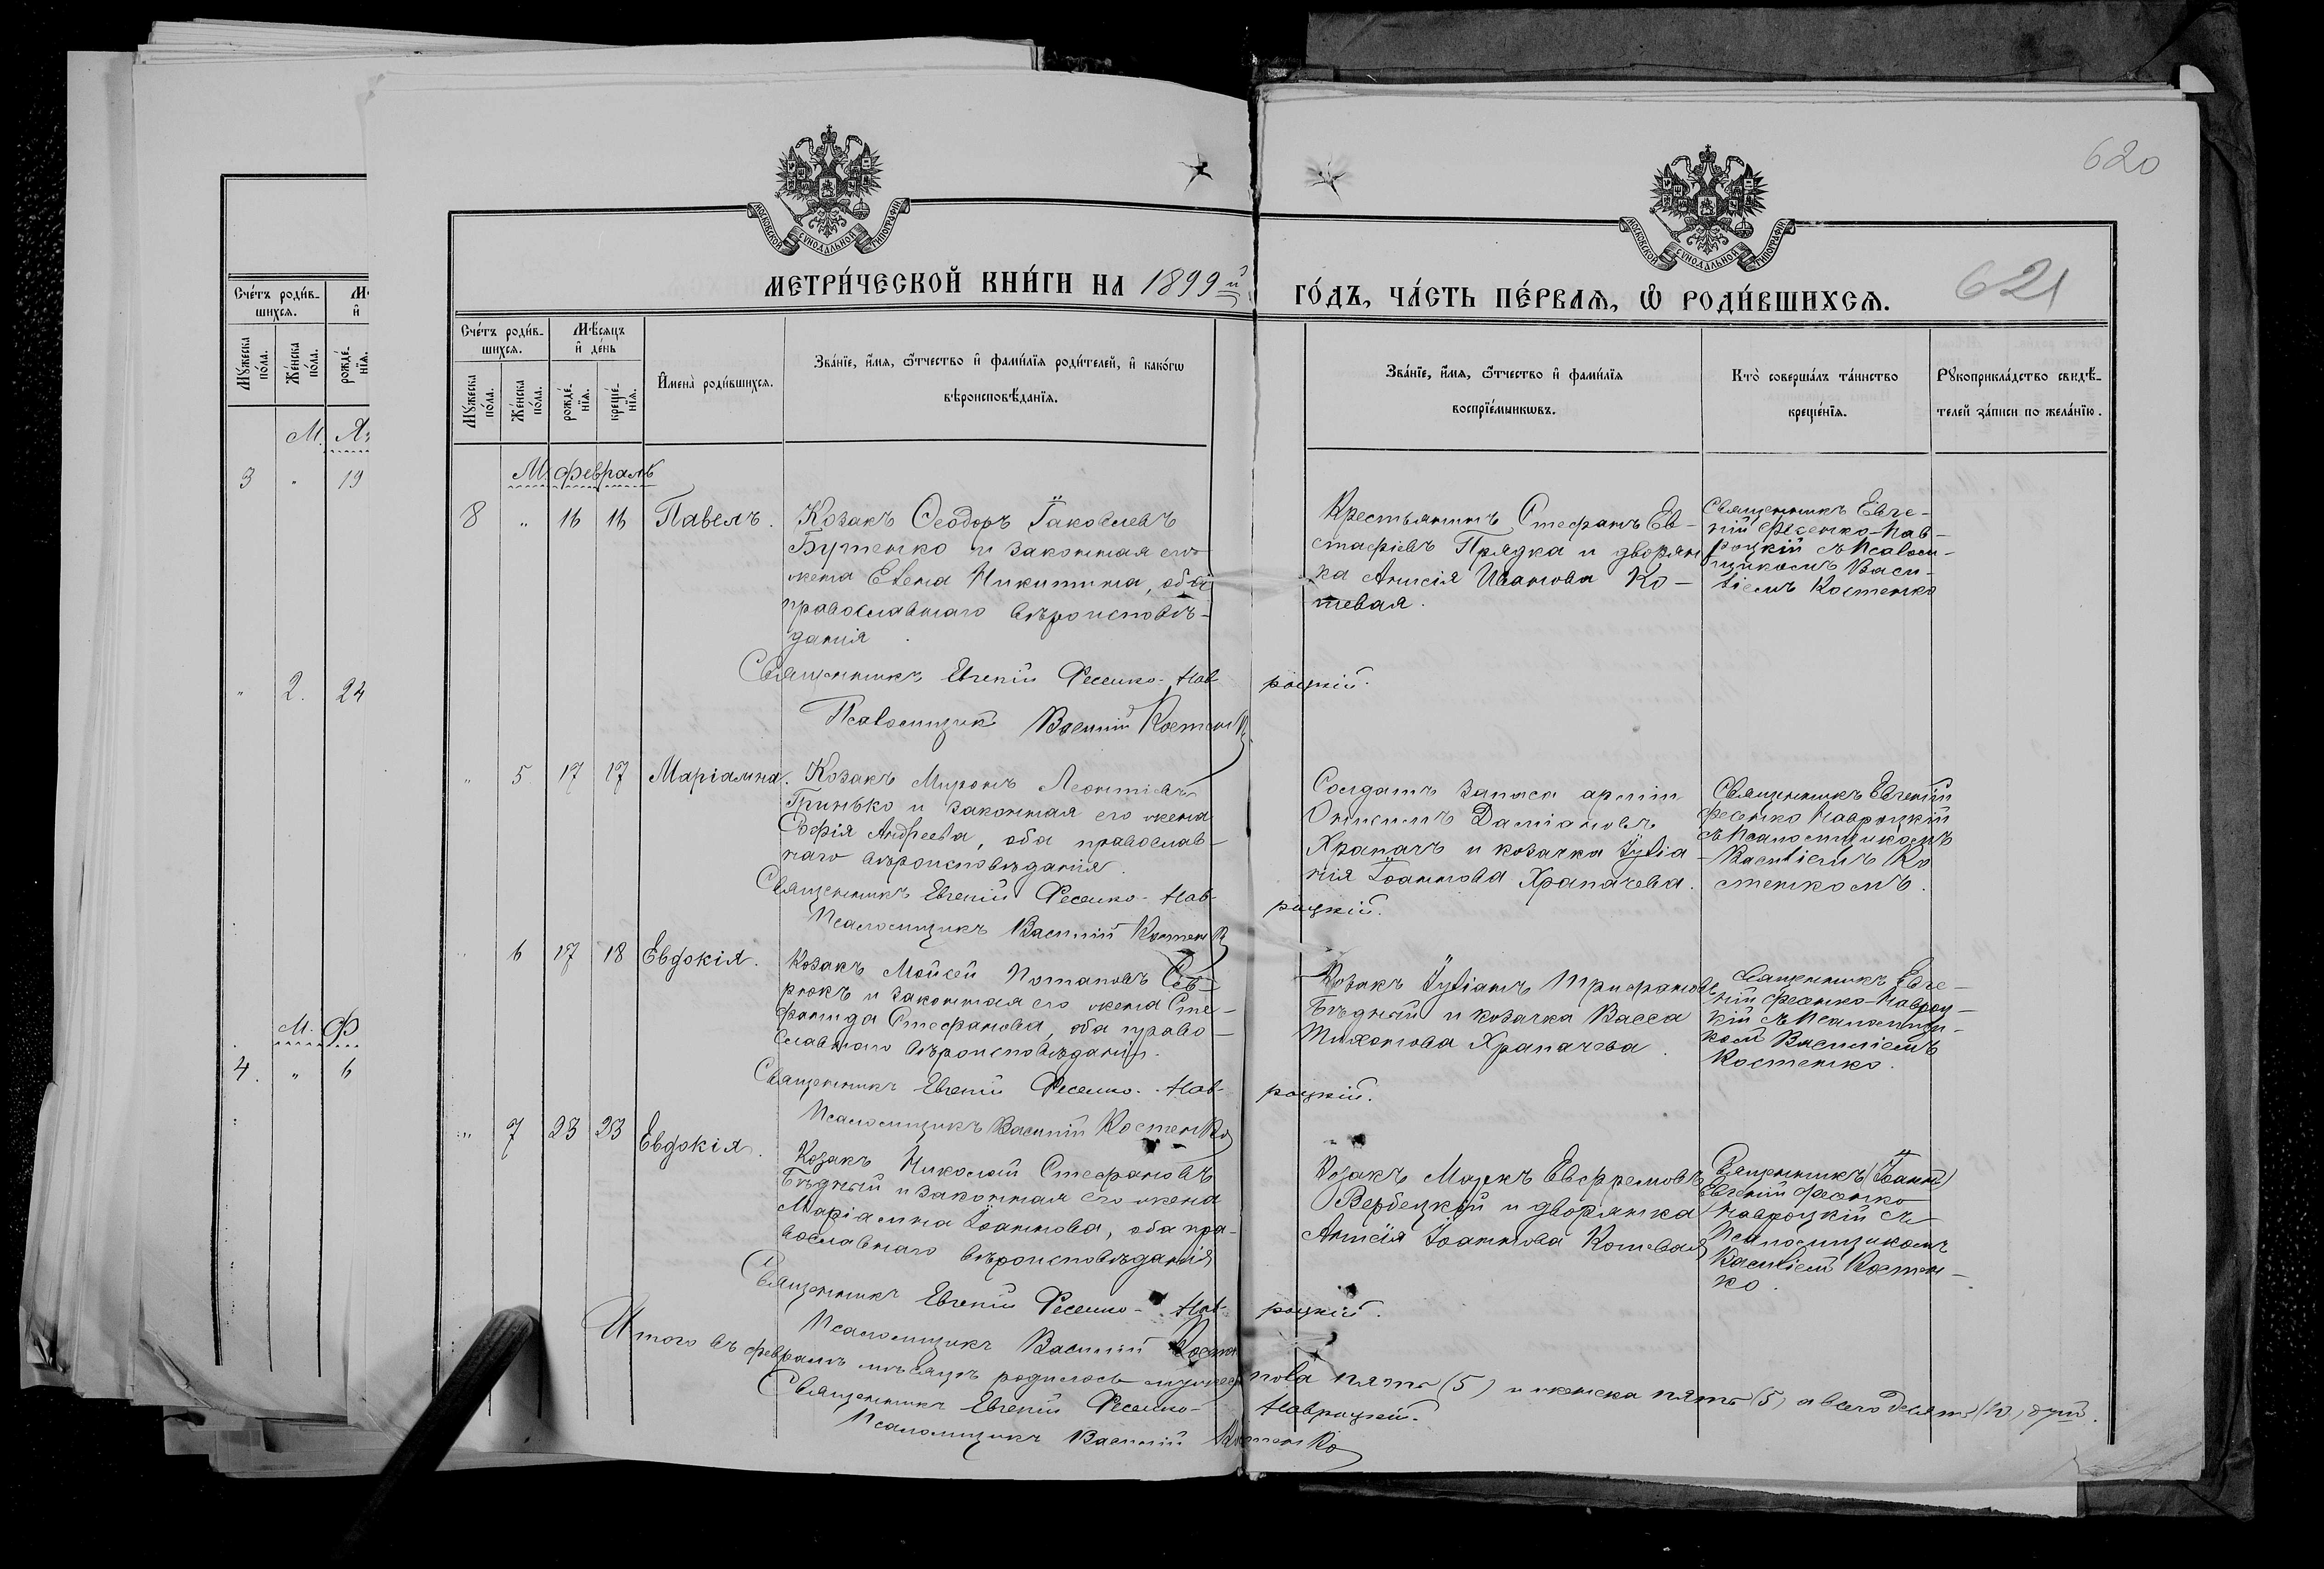 620
621
МОСКОВСКОЙ СУНОДАЛЬНОЙ ТИПОГРАФІИ
МОСКОВСКОЙ СУНОДАЛЬНОЙ ТИПОГРАФІИ
МЕТРИ́ЧЕСКОЙ КНИ́ГИ НА 1899й ГО́ДЪ, ЧА́СТЬ ПЕ́РВАѦ, Ѽ РОДИ́ВШИХСѦ.
Сче́тъ роди́в-
шихсѧ.
М
и҆
Мꙋ́жеска по́ла.
Же́нска по́ла.
рожде́-
нїѧ.
М. Ян
3 " 19
" 2. 24
М. Ф
4. " 6
Сче́тъ роди́в-
шихсѧ.
Мѣ́сѧцъ
и҆ де́нь
Мꙋ́жеска по́ла.
Же́нска по́ла.
рожде́-
нїѧ.
креще́-
нїѧ.
И҆мена̀ роди́вшихсѧ.
Зва́нїе, и҆́мѧ, ѻ҆́тчество и҆ фами́лїѧ роди́телей, и҆ како́гѡ
вѣроисповѣ́данїѧ.
Зва́нїе, и҆́мѧ, ѻ҆́тчество и҆ фами́лїѧ
воспрїе́мникѡвъ.
Кто̀ соверша́лъ та́инство
креще́нїѧ.
Рꙋкоприкла́дство свидѣ́-
телей за́писи по жела́нїю.
М. Февраль
8 " 16 16 Павелъ.
Козакъ Ѳеодоръ Іаковлевъ
Бутенко и законная его
жена Елена Никитина, оба
православнаго вѣроисповѣ-
данія.
Крестьянинъ Стефанъ Ев-
стафіевъ Прядка и дворян-
ка Анисія Иванова Ко-
шевая.
Священникъ Евге-
ній Фесенко-Нав-
роцкій съ Псалом-
щикомъ Васи-
ліемъ Костенко
Священникъ Евгеній Фесенко-Навроцкій.
Псаломщик Василий Костенко
" 5 17 17 Маріамна.
Козакъ Миронъ Леонтіевъ
Гринько и законная его жена
Софія Андреева, оба православ-
наго вѣроисповѣданія.
Солдатъ запаса арміи
Онисимъ Даміановъ
Храпачъ и козачка Іулiа-
нія Іоаннова Храпачева.
Священникъ Евгеній
Фесенко Навроцкій
съ Псаломщикомъ
Василіемъ Ко
стенкомъ.
Священникъ Евгеній Фесенко-Навроцкій.
Псаломщикъ Василий Костенко
" 6 17 18 Евдокія.
Козакъ Мойсей Потаповъ Сев-
рюкъ и законная его жена Сте-
фанида Стефанова, оба право-
славнаго вѣроисповѣданія.
Козакъ Іуліанъ Трифановъ
Бѣдный и козачка Васса
Тихонова Храпачева.
Священникъ Евге-
ній Фесенко-Навроц-
кій съ Псаломщи-
ком Василіемъ
Костенко.
Священникъ Евгеній Фесенко-Навроцкій.
Псаломщикъ Василий Костенко
" 7 23 23 Евдокія.
Козакъ Николай Стефановъ
Бѣдный и законная его жена
Маріамна Іоаннова, оба пра-
вославнаго вѣроисповѣданія
Козакъ Маркъ Евфремовъ
Вербецкій и дворянка
Анисія Іоаннова Кошевая
Священникъ (Іоанн)
Евгений Фесенко
Навроцкій съ
Псаломщикомъ
Василіем Костен-
ко.
Священникъ Евгеній Фесенко-Навроцкій.
Псаломщикъ Василий Костен
Итого въ февралѣ мѣсяцѣ родилось мужеска пола пять (5) и женска пять (5) а всего десять (10) душ.
Священникъ Евгеній Фесенко-Навроцкій.
Псаломщикъ Василий Костенко